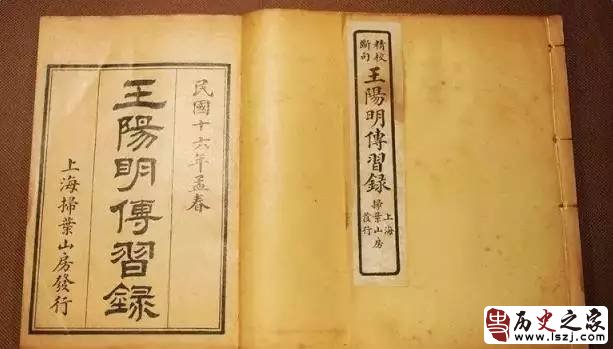 民國十六年孟春
王陽明傳習錄
上海掃葉山房發行
精校
斷句
王陽明傳習錄
上海
掃葉山房
發行
史
历史之家
www.lszj.com